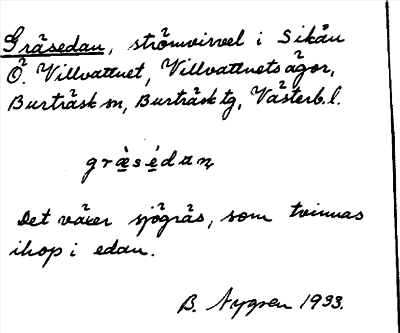 Gräsedan, strömvirvel i Sikån
Ö. Villvattnet, Villvattnets ägor,
Burträsk sn, Burträsk tg, Västerb. l.
græ̀sédan̥
Det växer sjögräs, som tvinnas
ihop i edan.
B. Nygren 1933.